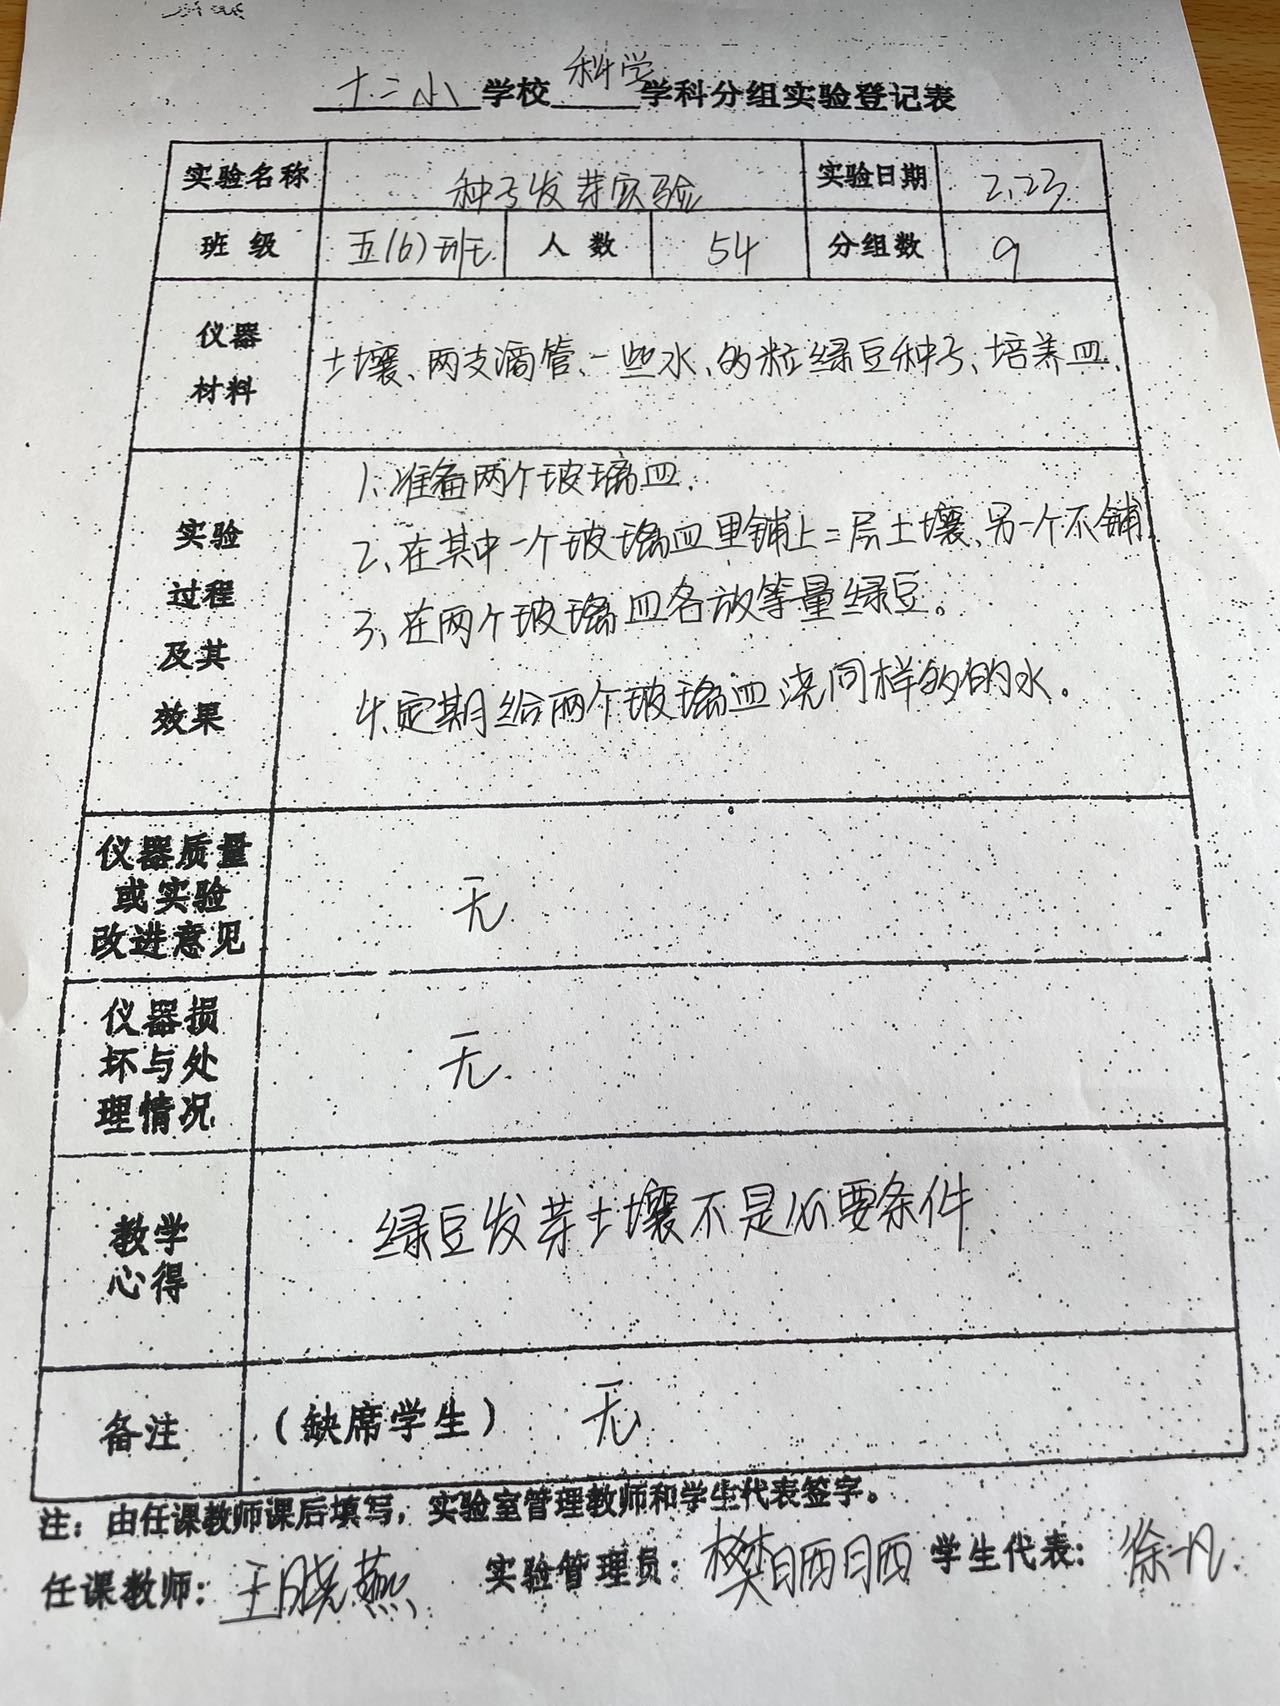 十二小学校科学学科分组实验登记表
实验名称 种子发芽实验 实验日期 2.23
班级 五(6)班 人数 54 分组数 9
仪器
材料
土壤、两支滴管、一些水、的粒绿豆种子、培养皿.
实验
过程
及其
效果
1、准备两个玻璃皿.
2、在其中一个玻璃皿里铺上二层土壤、另一个不铺.
3、在两个玻璃皿各放等量绿豆。
4.定期给两个玻璃皿浇同样多的水。
仪器质量
或实验
改进意见
无
仪器损
坏与处
理情况
无.
教学
心得
绿豆发芽土壤不是必要条件.
备注 (缺席学生) 无
注：由任课教师课后填写，实验室管理教师和学生代表签字。
任课教师：王晓燕 实验管理员：樊晒晒 学生代表：徐一凡.